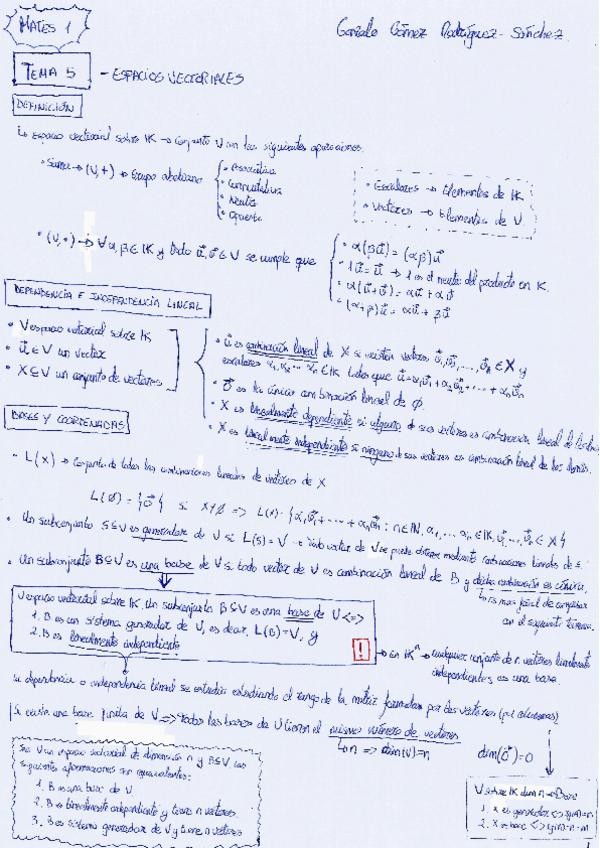 MATES 1
Gonzalo Gómez Rodríguez-Sánchez.
TEMA 5 - ESPACIOS VECTORIALES
DEFINICIÓN
espacio vectorial sobre IK → conjunto V con las siguientes operaciones:
• Suma → (V,+) → Grupo abeliano
• Asociativa
• Conmutativa
• Neutro
• Opuesto
• Escalares → Elementos de IK
• Vectores → Elementos de V.
• (V,·) → ∀α,β∈IK y todo u⃗,v⃗∈V se cumple que
• α(βu⃗)=(αβ)u⃗
• 1u⃗=u⃗ → 1 es el neutro del producto en K.
• α(u⃗+v⃗)=αu⃗+αv⃗
• (α+β)u⃗=αu⃗+βu⃗
DEPENDENCIA E INDEPENDENCIA LINEAL
• V espacio vectorial sobre IK
• u⃗∈V un vector
• X⊆V un conjunto de vectores
• u⃗ es combinación lineal de X si existen vectores v⃗₁,v⃗₂,...,v⃗ₙ∈X y
escalares α₁,α₂...αₙ∈IK tales que u⃗=α₁v⃗₁+α₂v⃗₂+...+αₙv⃗ₙ
• 0⃗ es la única combinación lineal de ∅.
• X es linealmente dependiente si alguno de sus vectores es combinación lineal de los demás
• X es linealmente independiente si ninguno de sus vectores es combinación lineal de los demás.
BASES Y COORDENADAS
• L(X) → Conjunto de todas las combinaciones lineales de vectores de X
L(∅)={0⃗} si X≠∅ => L(X)={α₁v⃗₁+...+αₙv⃗ₙ : n∈IN, α₁,...,αₙ∈IK, v⃗₁,...,v⃗ₙ∈X}
• Un subconjunto S⊆V es generador de V si L(S)=V → todo vector de V se puede obtener mediante combinaciones lineales de S.
• Un subconjunto B⊆V es una base de V si todo vector de V es combinación lineal de B y dicha combinación es única.
es más fácil de comprobar
con el siguiente teorema.
V espacio vectorial sobre IK. Un subconjunto B⊆V es una base de V <=>
1. B es un sistema generador de V, es decir, L(B)=V, y
2. B es linealmente independiente
!
→ en IKⁿ → cualquier conjunto de n vectores linealmente
independientes es una base.
La dependencia o independencia lineal se estudia estudiando el rango de la matriz formada por los vectores (por columnas)
Si existe una base finita de V => todas las bases de V tienen el mismo número de vectores
n => dim(V)=n
dim(0⃗)=0
Sea V un espacio vectorial de dimensión n y B⊆V, las
siguientes afirmaciones son equivalentes:
1. B es una base de V.
2. B es linealmente independiente y tiene n vectores.
3. B es sistema generador de V y tiene n vectores
V sobre IK dim n
1. X es generador <=>
2. X es base <=>